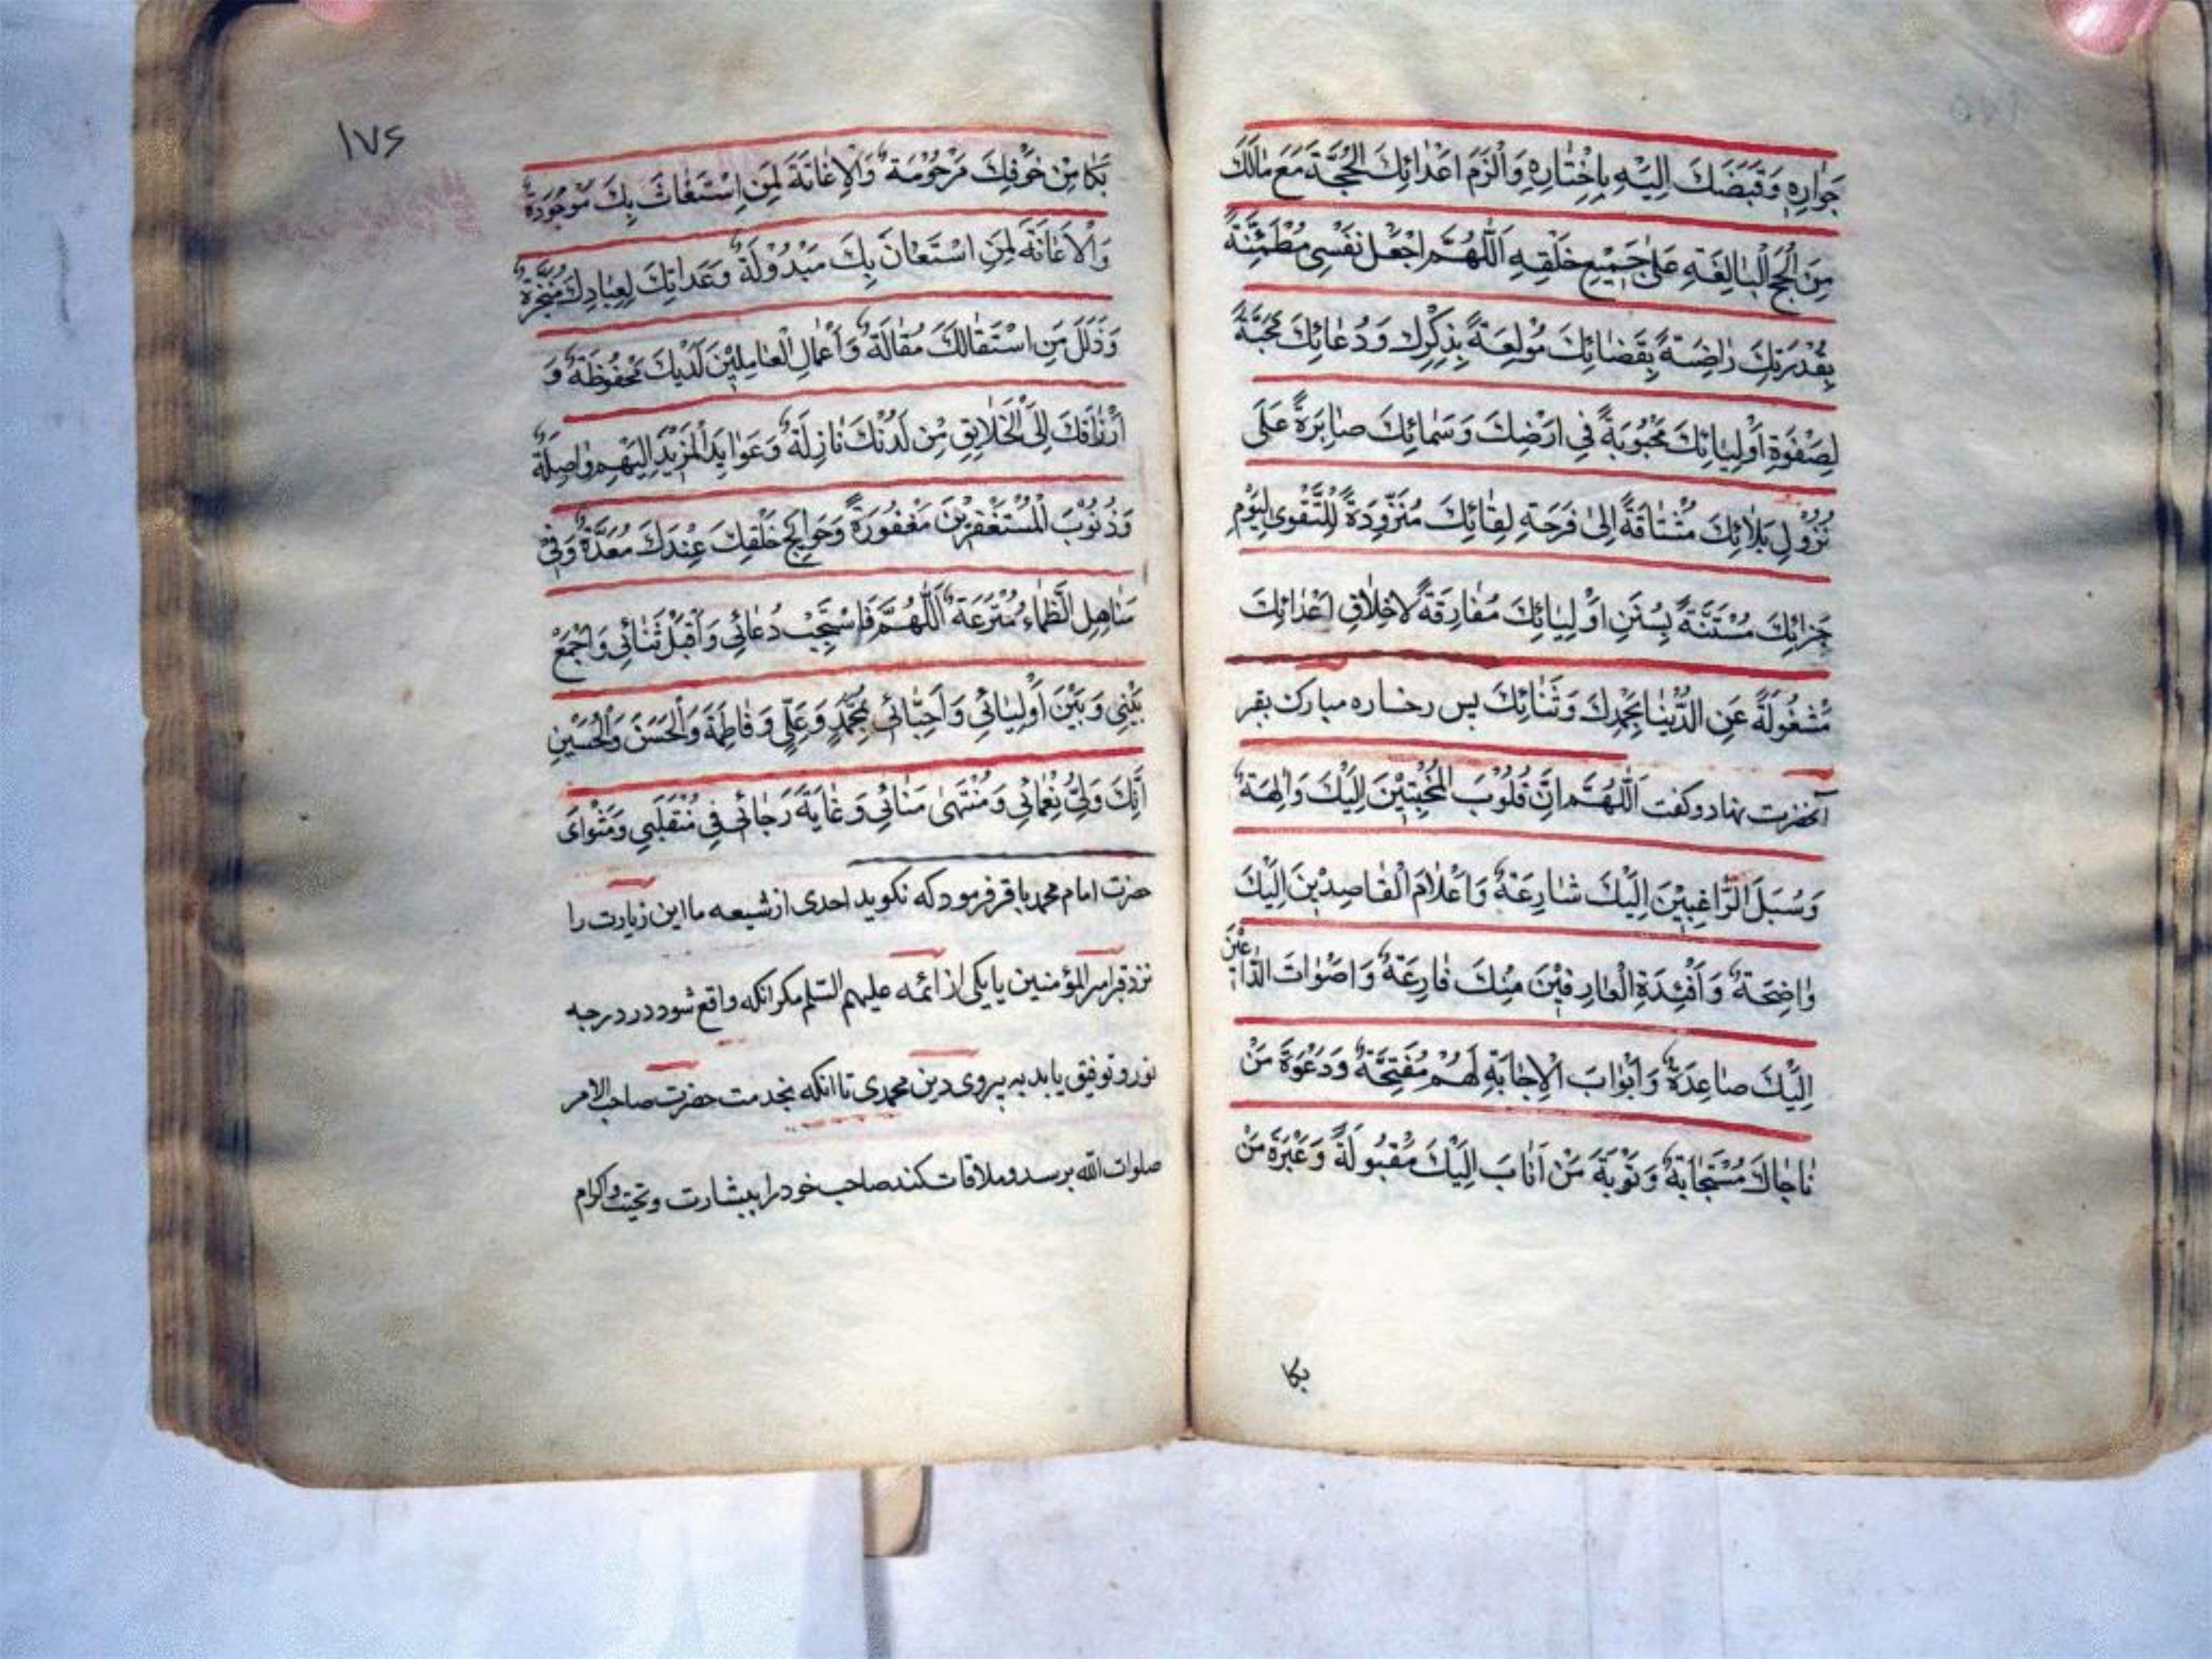 جِوٰارِهِ وَقَبَضَكَ اِلَيْهِ بِاِخْتِيٰارِهِ وَاَلْزَمَ اَعْدٰائِكَ الْحُجَّةَ مَعَ مٰالَكَ
مِنَ الْحُجَجِ الْبٰالِغَةِ عَلىٰ جَمِيْعِ خَلْقِهِ اَللّٰهُمَّ اجْعَلْ نَفْسِى مُطْمَئِنَّةً
بِقَدَرِكَ رٰاضِيَةً بِقَضٰائِكَ مُوْلِعَةً بِذِكْرِكَ وَدُعٰائِكَ مُحِبَّةً
لِصَفْوَةِ اَوْلِيٰائِكَ مَحْبُوْبَةً فِى اَرْضِكَ وَسَمٰائِكَ صٰابِرَةً عَلَى
نُزُوْلِ بَلٰائِكَ مُشْتٰاقَةً اِلىٰ فَرْحَةِ لِقٰائِكَ مُتَزَوِّدَةً لِلتَّقْوىٰ لِيَوْمِ
جَزٰائِكَ مُسْتَنَّةً بِسُنَنِ اَوْلِيٰائِكَ مُفٰارِقَةً لِاَخْلٰاقِ اَعْدٰائِكَ
مَشْغُوْلَةً عَنِ الدُّنْيٰا بِحَمْدِكَ وَثَنٰائِكَ پس رخساره مبارك بقبر
آنحضرت نهاد و كفت اَللّٰهُمَّ اِنَّ قُلُوْبَ الْمُخْبِتِيْنَ اِلَيْكَ وَالِهَةٌ
وَسُبَلَ الرّٰاغِبِيْنَ اِلَيْكَ شٰارِعَةٌ وَاَعْلٰامَ الْقٰاصِدِيْنَ اِلَيْكَ
وٰاضِحَةٌ وَاَفْئِدَةَ الْعٰارِفِيْنَ مِنْكَ فٰازِعَةٌ وَاَصْوٰاتَ الدّٰاعِيْنَ
اِلَيْكَ صٰاعِدَةٌ وَاَبْوٰابَ الْاِجٰابَةِ لَهُمْ مُفَتَّحَةٌ وَدَعْوَةَ مَنْ
نٰاجٰاكَ مُسْتَجٰابَةٌ وَتَوْبَةَ مَنْ اَنٰابَ اِلَيْكَ مَقْبُوْلَةٌ وَعَبْرَةَ مَنْ
بكا
١٧۶
بَكٰا مِنْ خَوْفِكَ مَرْحُوْمَةٌ وَالْاِغٰاثَةَ لِمَنِ اسْتَغٰاثَ بِكَ مَوْجُوْدَةٌ
وَالْاِعٰانَةَ لِمَنِ اسْتَعٰانَ بِكَ مَبْذُوْلَةٌ وَعِدٰاتِكَ لِعِبٰادِكَ مُنْجَزَةٌ
وَزَلَلَ مَنِ اسْتَقٰالَكَ مُقٰالَةٌ وَاَعْمٰالَ الْعٰامِلِيْنَ لَدَيْكَ مَحْفُوْظَةٌ وَ
اَرْزٰاقَكَ اِلَى الْخَلٰايِقِ مِنْ لَدُنْكَ نٰازِلَةٌ وَعَوٰايِدَ الْمَزِيْدِ اِلَيْهِمْ وٰاصِلَةٌ
وَذُنُوْبَ الْمُسْتَغْفِرِيْنَ مَغْفُوْرَةٌ وَحَوٰايِجَ خَلْقِكَ عِنْدَكَ مُعَدَّةٌ وَفِى
مَنٰاهِلَ الظِّمٰاءِ مُتْرَعَةٌ اَللّٰهُمَّ فَاسْتَجِبْ دُعٰائِى وَاقْبَلْ ثَنٰائِى وَاجْمَعْ
بَيْنِى وَبَيْنَ اَوْلِيٰائِى وَاَحِبّٰائِى بِمُحَمَّدٍ وَعَلِىٍّ وَفٰاطِمَةَ وَالْحَسَنِ وَالْحُسَيْنِ
اِنَّكَ وَلِىُّ نِعْمٰائِى وَمُنْتَهىٰ مُنٰائِى وَغٰايَةُ رَجٰائِى فِى مُنْقَلَبِى وَمَثْوٰاىَ
حضرت امام محمد باقر فرمود كه نكويد احدى از شيعه ما اين زيارت را
نزد قبر امير المؤمنين يا يكى از ائمه عليهم السّلم مكر انكه واقع شود در درجه
نور و توفيق يابد به پيروى دين محمدى تا انكه بخدمت حضرت صاحب الامر
صلوات الله برسد و ملاقات كند صاحب خود را ببشارت و تحيت و اكرام